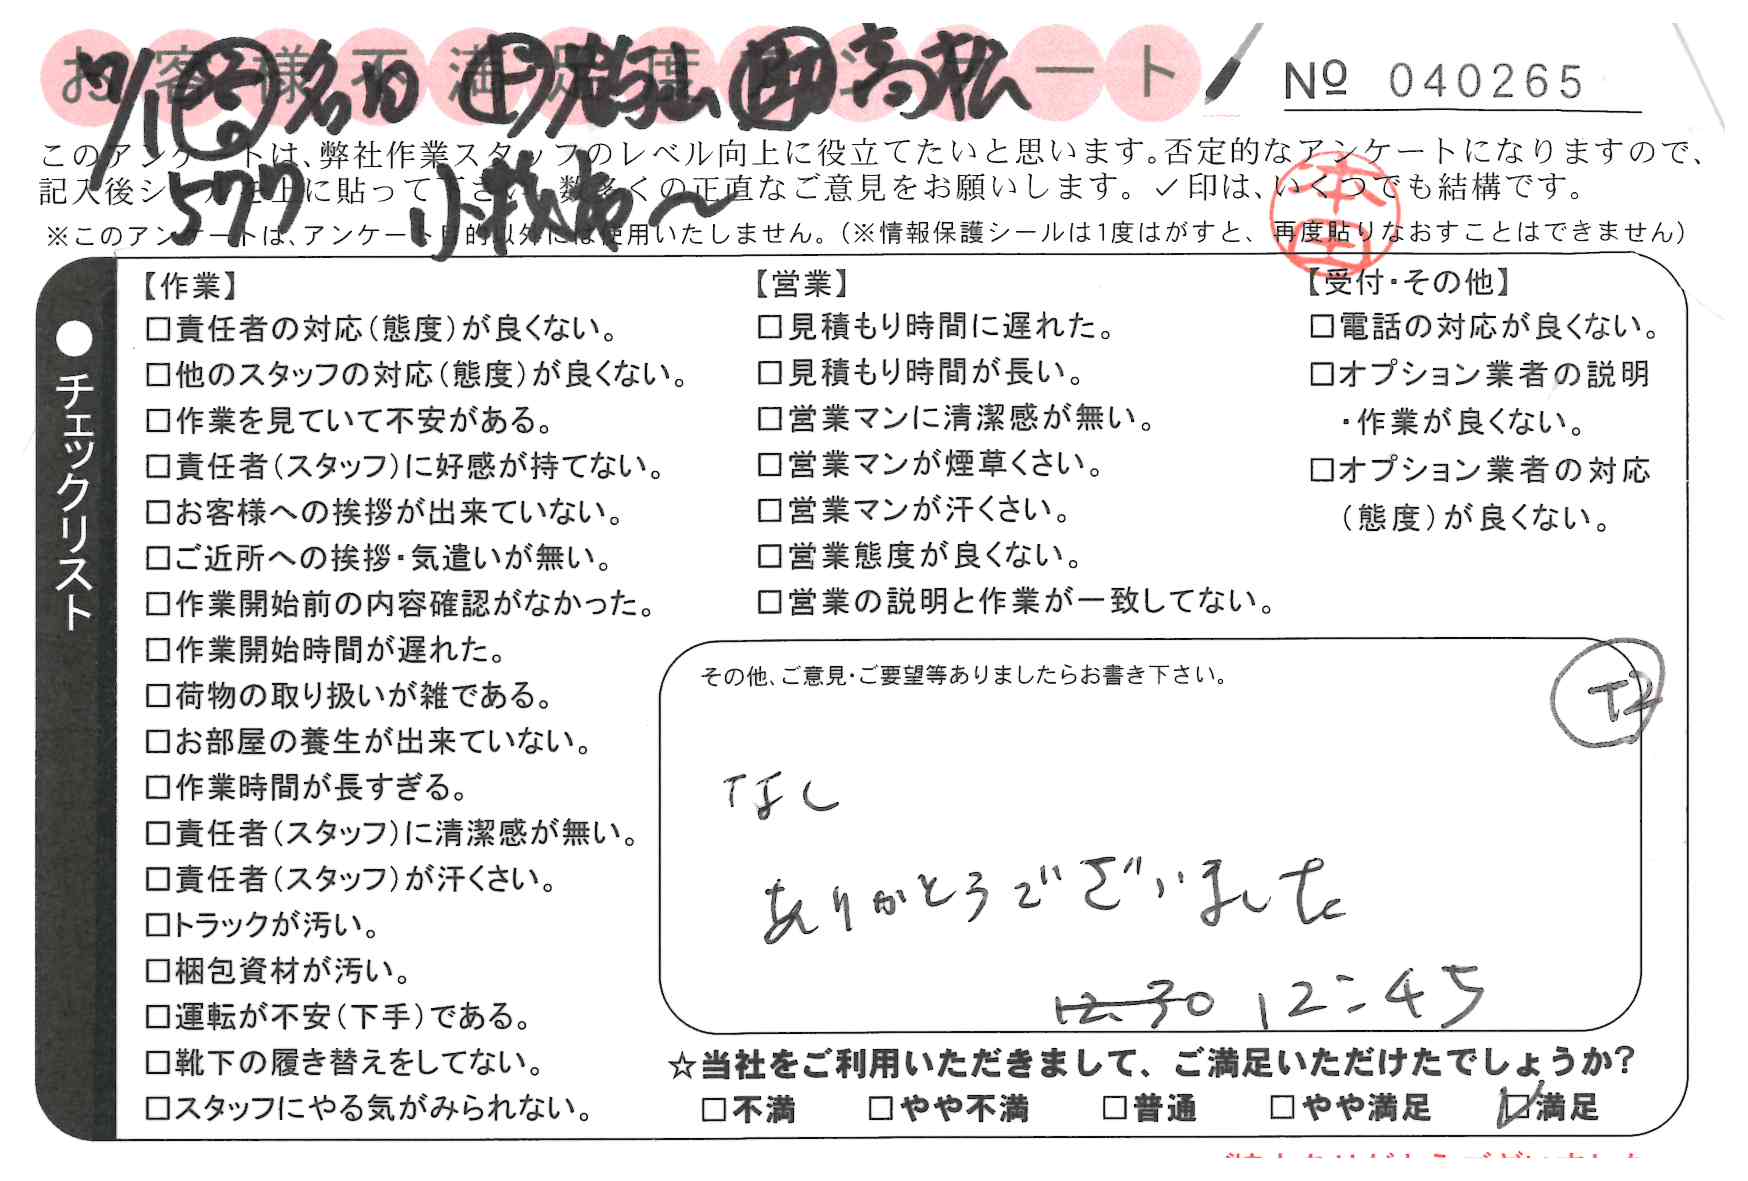 お客様不満足度アンケート
№ 040265
7/1 名 高松
577
このアンケートは、弊社作業スタッフのレベル向上に役立てたいと思います。否定的なアンケートになりますので、
記入後シールを上に貼って下さい。数多くの正直なご意見をお願いします。✓印は、いくつでも結構です。
※このアンケートは、アンケート目的以外には使用いたしません。(※情報保護シールは1度はがすと、再度貼りなおすことはできません)
本田
●チェックリスト
【作業】
□責任者の対応(態度)が良くない。
□他のスタッフの対応(態度)が良くない。
□作業を見ていて不安がある。
□責任者(スタッフ)に好感が持てない。
□お客様への挨拶が出来ていない。
□ご近所への挨拶・気遣いが無い。
□作業開始前の内容確認がなかった。
□作業開始時間が遅れた。
□荷物の取り扱いが雑である。
□お部屋の養生が出来ていない。
□作業時間が長すぎる。
□責任者(スタッフ)に清潔感が無い。
□責任者(スタッフ)が汗くさい。
□トラックが汚い。
□梱包資材が汚い。
□運転が不安(下手)である。
□靴下の履き替えをしてない。
□スタッフにやる気がみられない。
【営業】
□見積もり時間に遅れた。
□見積もり時間が長い。
□営業マンに清潔感が無い。
□営業マンが煙草くさい。
□営業マンが汗くさい。
□営業態度が良くない。
□営業の説明と作業が一致してない。
【受付・その他】
□電話の対応が良くない。
□オプション業者の説明
・作業が良くない。
□オプション業者の対応
(態度)が良くない。
その他、ご意見・ご要望等ありましたらお書き下さい。
なし
ありがとうございました
12:30 12:45
☆当社をご利用いただきまして、ご満足いただけたでしょうか?
□不満 □やや不満 □普通 □やや満足 ☑満足